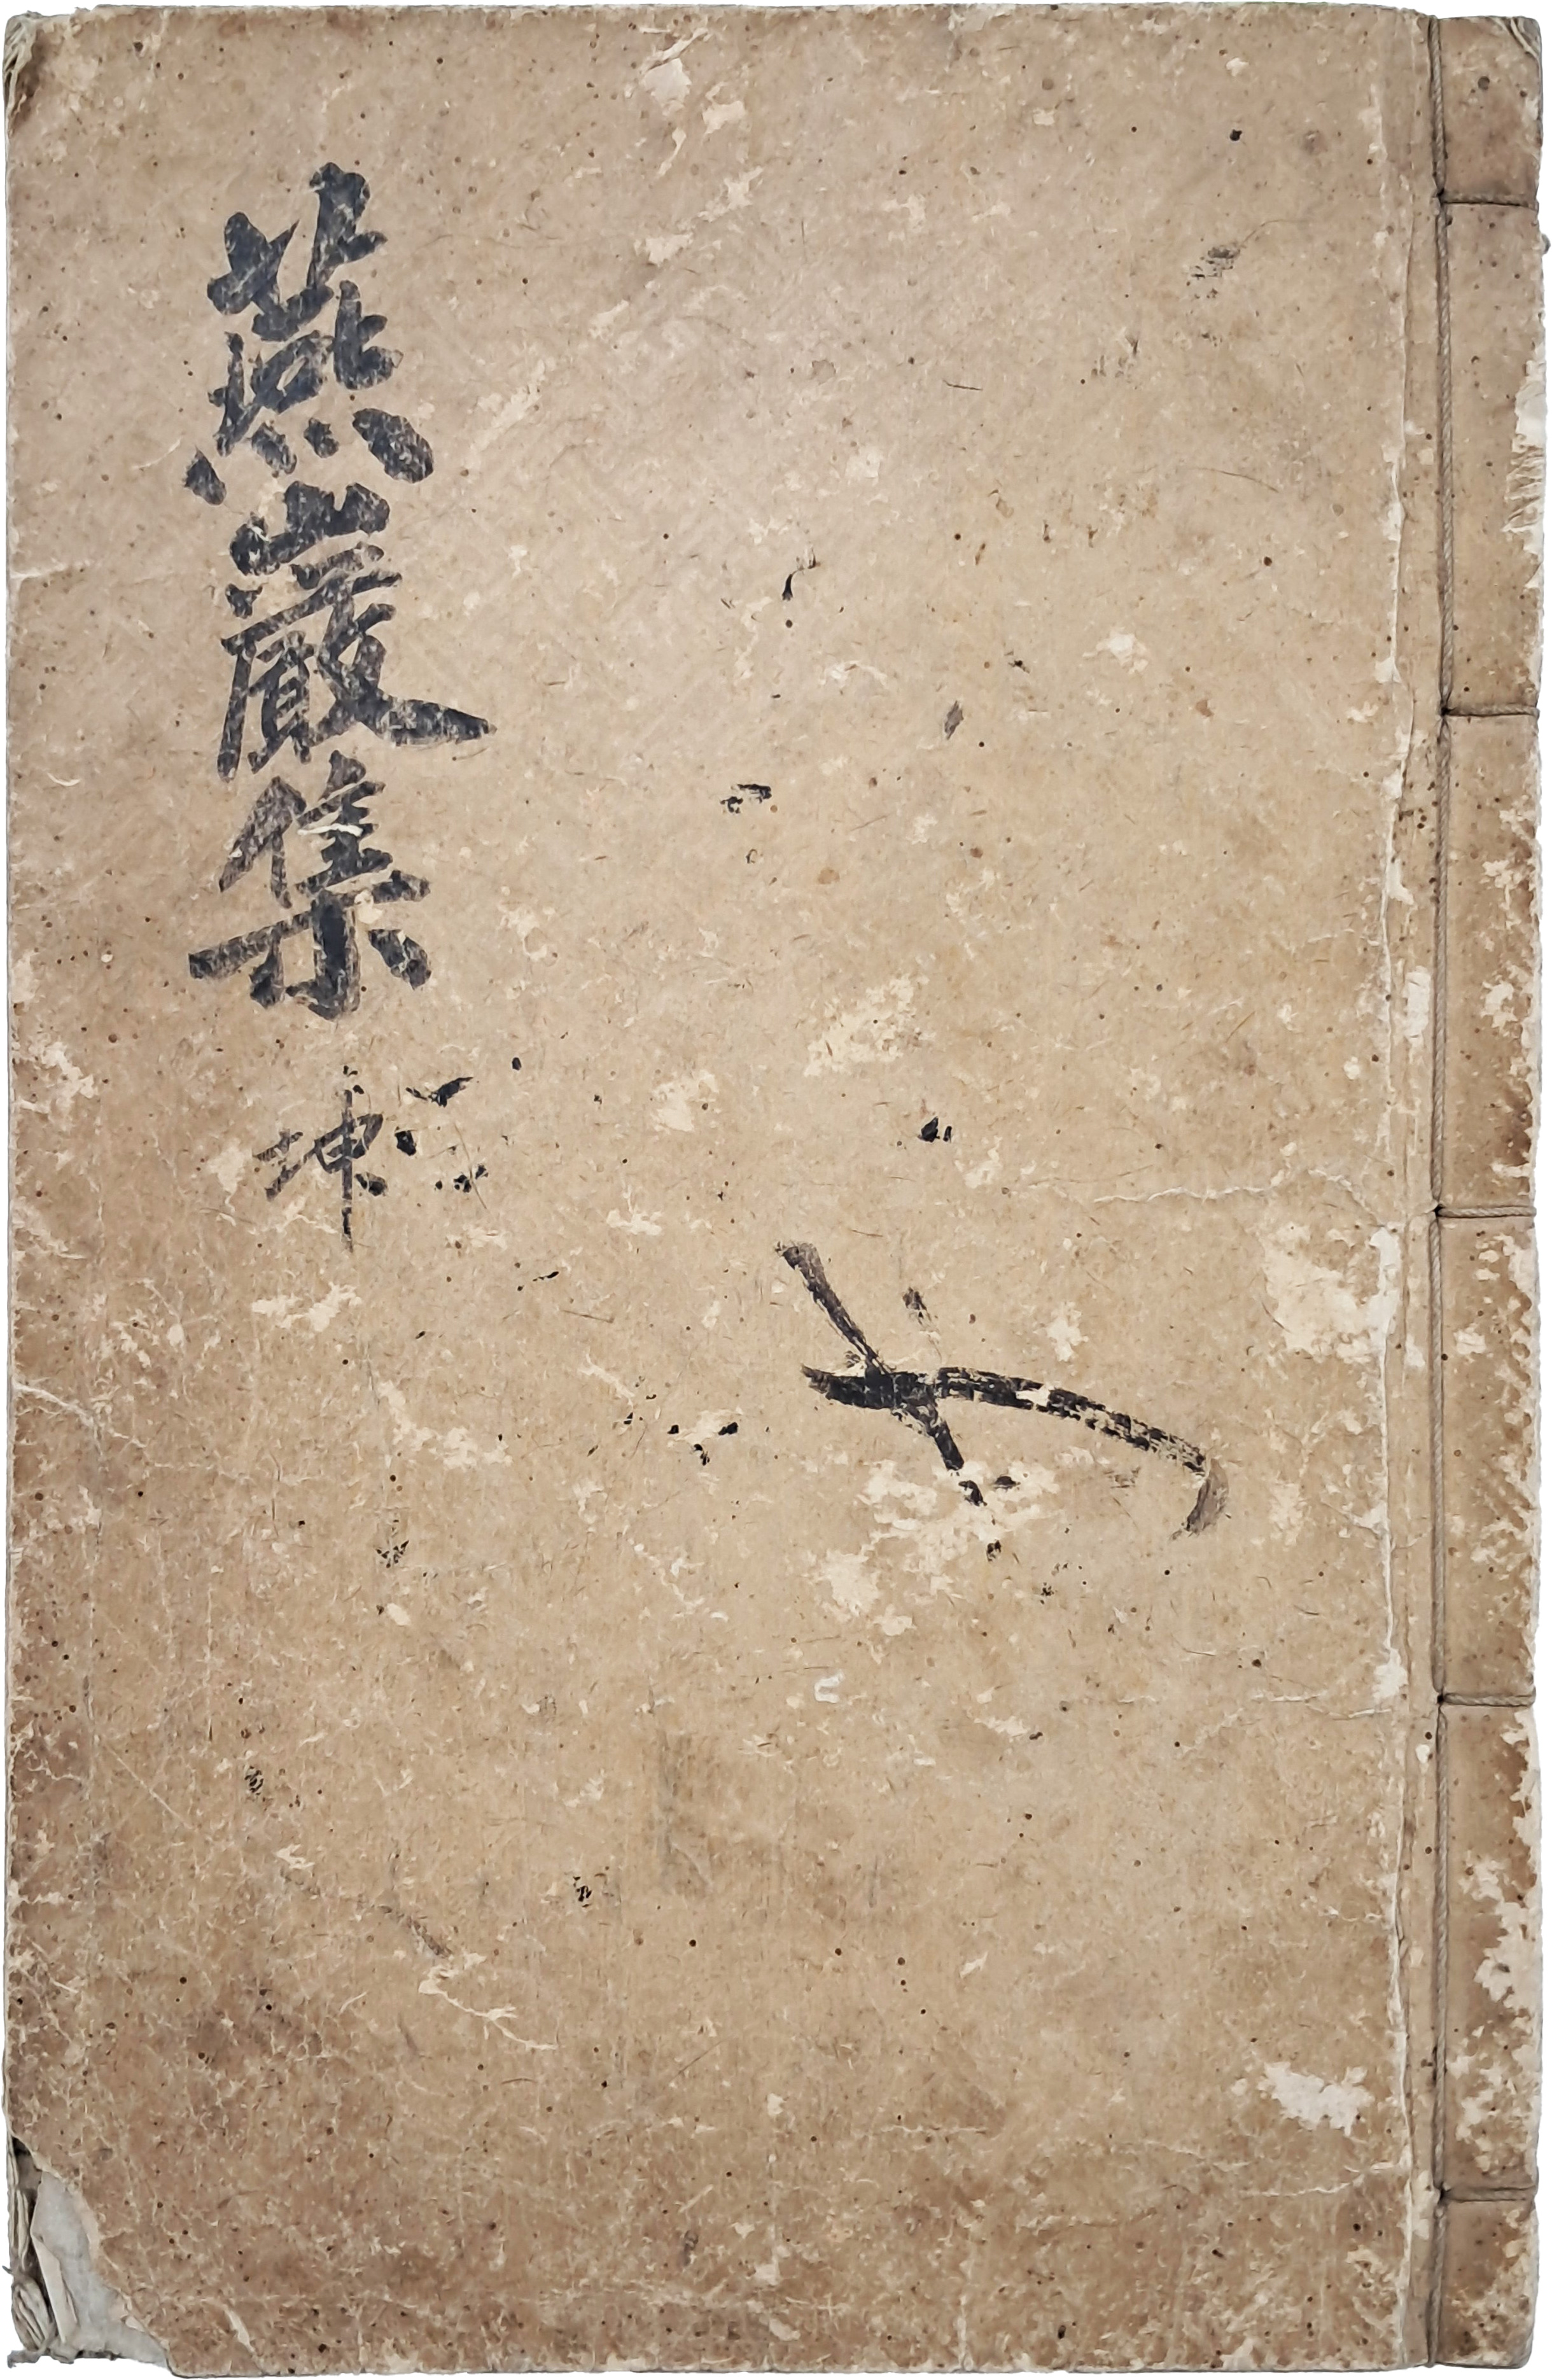 燕巖集 坤